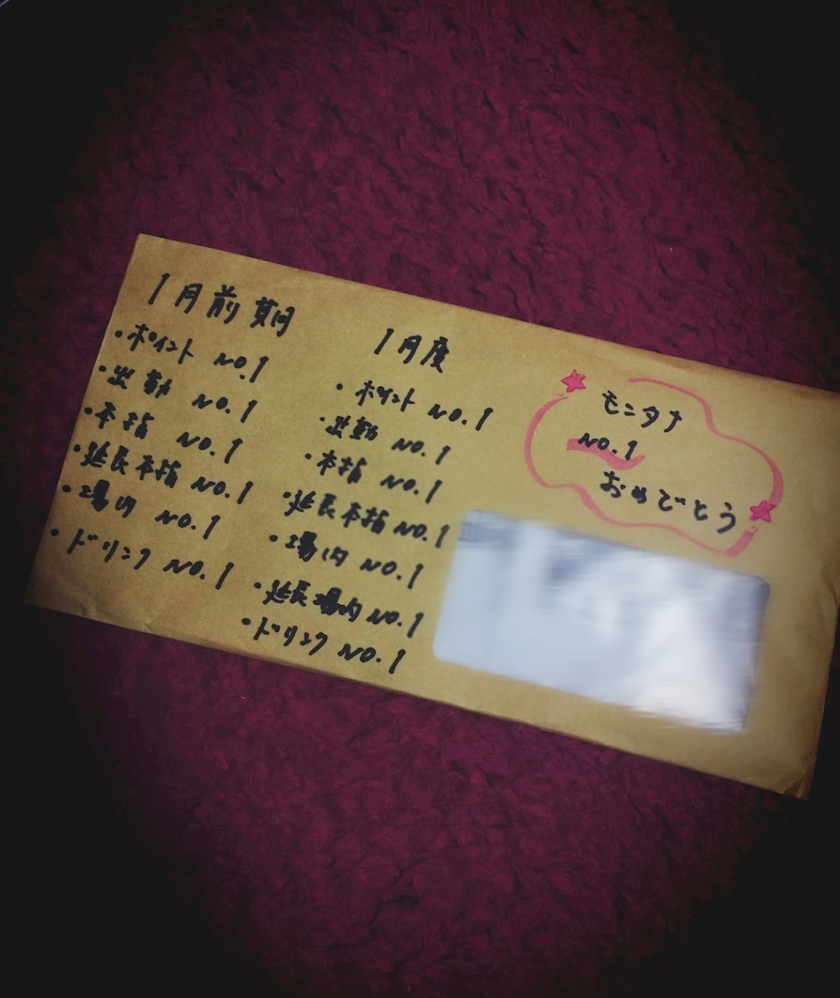 1月前期
・ポイント NO.1
・出勤 NO.1
・本指 NO.1
・延長本指 NO.1
・場内 NO.1
・ドリンク NO.1
1月度
・ポイント NO.1
・出勤 NO.1
・本指 NO.1
・延長本指 NO.1
・場内 NO.1
・延長場内 NO.1
・ドリンク NO.1
モンタナ
NO.1
おめでとう